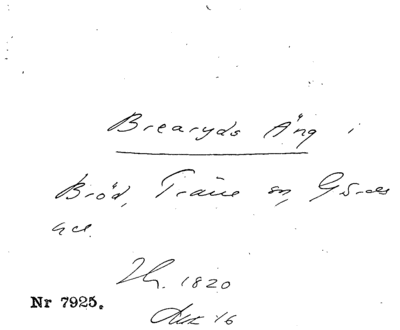 Brearyds Äng i
Bröd, Träne sn, Gärds
hd.
1820
Nr 7925.
Akt 16